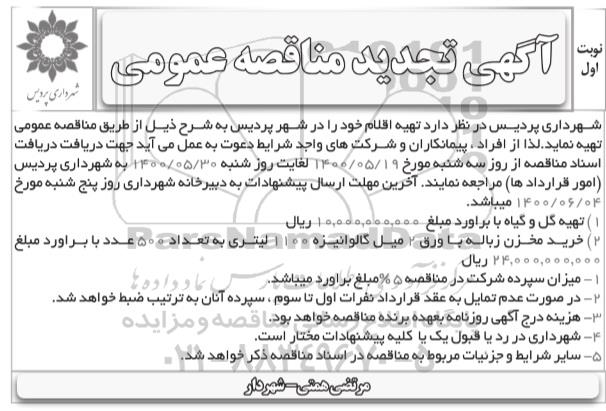 نوبت اول
آگهی تجدید مناقصه عمومی
شهرداری پردیس
شهرداری پردیس در نظر دارد تهیه اقلام خود را در شهر پردیس به شرح ذیل از طریق مناقصه عمومی
تهیه نماید.لذا از افراد ، پیمانکاران و شرکت های واحد شرایط دعوت به عمل می آید جهت دریافت دریافت
اسناد مناقصه از روز سه شنبه مورخ ۱۴۰۰/۰۵/۱۹ لغایت روز شنبه ۱۴۰۰/۰۵/۳۰ به شهرداری پردیس
(امور قرارداد ها) مراجعه نمایند. آخرین مهلت ارسال پیشنهادات به دبیرخانه شهرداری روز پنج شنبه مورخ
۱۴۰۰/۰۶/۰۴ میباشد.
۱) تهیه گل و گیاه با براورد مبلغ ۱۰,۰۰۰,۰۰۰,۰۰۰ ریال
۲) خرید مخزن زباله با ورق ۲ میل گالوانیزه ۱۱۰۰ لیتری به تعداد ۵۰۰ عدد با براورد مبلغ
۲۴,۰۰۰,۰۰۰,۰۰۰ ریال
۱- میزان سپرده شرکت در مناقصه ۵%مبلغ براورد میباشد.
۲- در صورت عدم تمایل به عقد قرارداد نفرات اول تا سوم ، سپرده آنان به ترتیب ضبط خواهد شد.
۳- هزینه درج آگهی روزنامه بعهده برنده مناقصه خواهد بود.
۴- شهرداری در رد یا قبول یک یا کلیه پیشنهادات مختار است.
۵- سایر شرایط و جزئیات مربوط به مناقصه در اسناد مناقصه ذکر خواهد شد.
مرتضی همتی - شهردار
ParsNamadData
۰۲۱-۸۸۳۴۹۶۷۰-۵